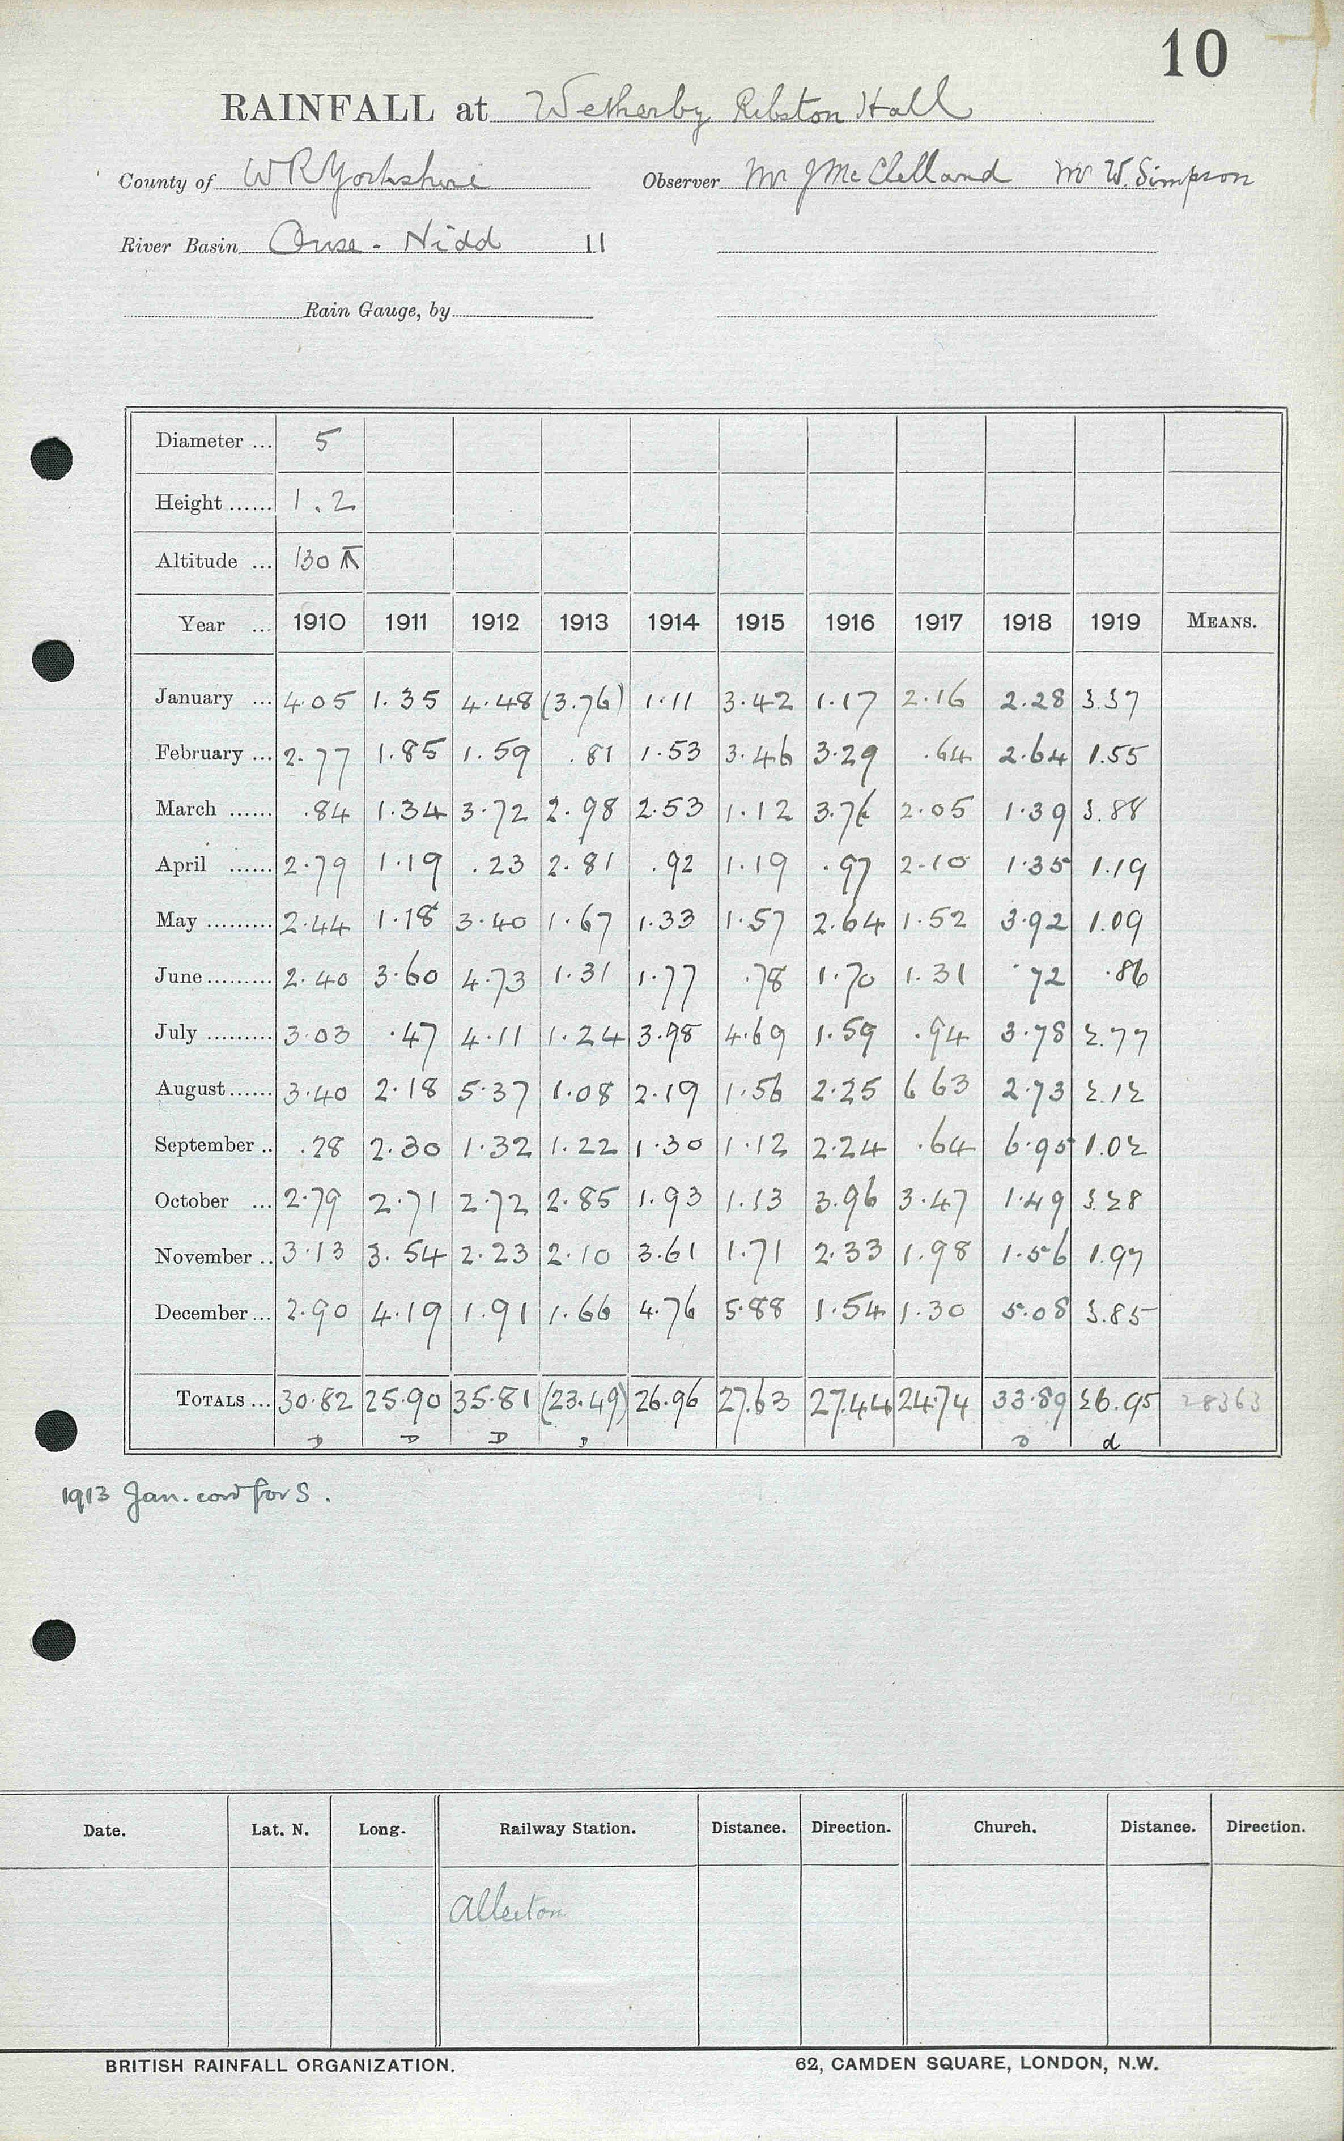 10
RAINFALL at Wetherby Ribston Hall
County of W R Yorkshire Observer Mr J McClelland Mr W. Simpson
River Basin Ouse - Nidd 11
Rain Gauge, by
Diameter ... 5
Height ...... 1.2
Altitude ... 130
Year ... 1910 1911 1912 1913 1914 1915 1916 1917 1918 1919 MEANS.
January ... 4.05 1.35 4.48 (3.76) 1.11 3.42 1.17 2.16 2.28 3.37
February ... 2.77 1.85 1.59 .81 1.53 3.46 3.29 .64 2.64 1.55
March ...... .84 1.34 3.72 2.98 2.53 1.12 3.76 2.05 1.39 3.88
April ...... 2.79 1.19 .23 2.81 .92 1.19 .97 2.10 1.35 1.19
May ......... 2.44 1.18 3.40 1.67 1.33 1.57 2.64 1.52 3.92 1.09
June ......... 2.40 3.60 4.73 1.31 1.77 .78 1.70 1.31 .72 .86
July ......... 3.03 .47 4.11 1.24 3.98 4.69 1.59 .94 3.78 2.77
August ...... 3.40 2.18 5.37 1.08 2.19 1.56 2.25 6 63 2.73 2.12
September .. .28 2.30 1.32 1.22 1.30 1.12 2.24 .64 6.95 1.02
October ... 2.79 2.71 2.72 2.85 1.93 1.13 3.96 3.47 1.49 3.28
November .. 3.13 3.54 2.23 2.10 3.61 1.71 2.33 1.98 1.56 1.97
December ... 2.90 4.19 1.91 1.66 4.76 5.88 1.54 1.30 5.08 3.85
TOTALS ... 30.82 25.90 35.81 (23.49) 26.96 27.63 27.44 24.74 33.89 26.95 28363
D D D D D d
1913 Jan. cord for S.
Date. Lat. N. Long. Railway Station. Distance. Direction. Church. Distance. Direction.
Allerton
BRITISH RAINFALL ORGANIZATION. 62, CAMDEN SQUARE, LONDON, N.W.